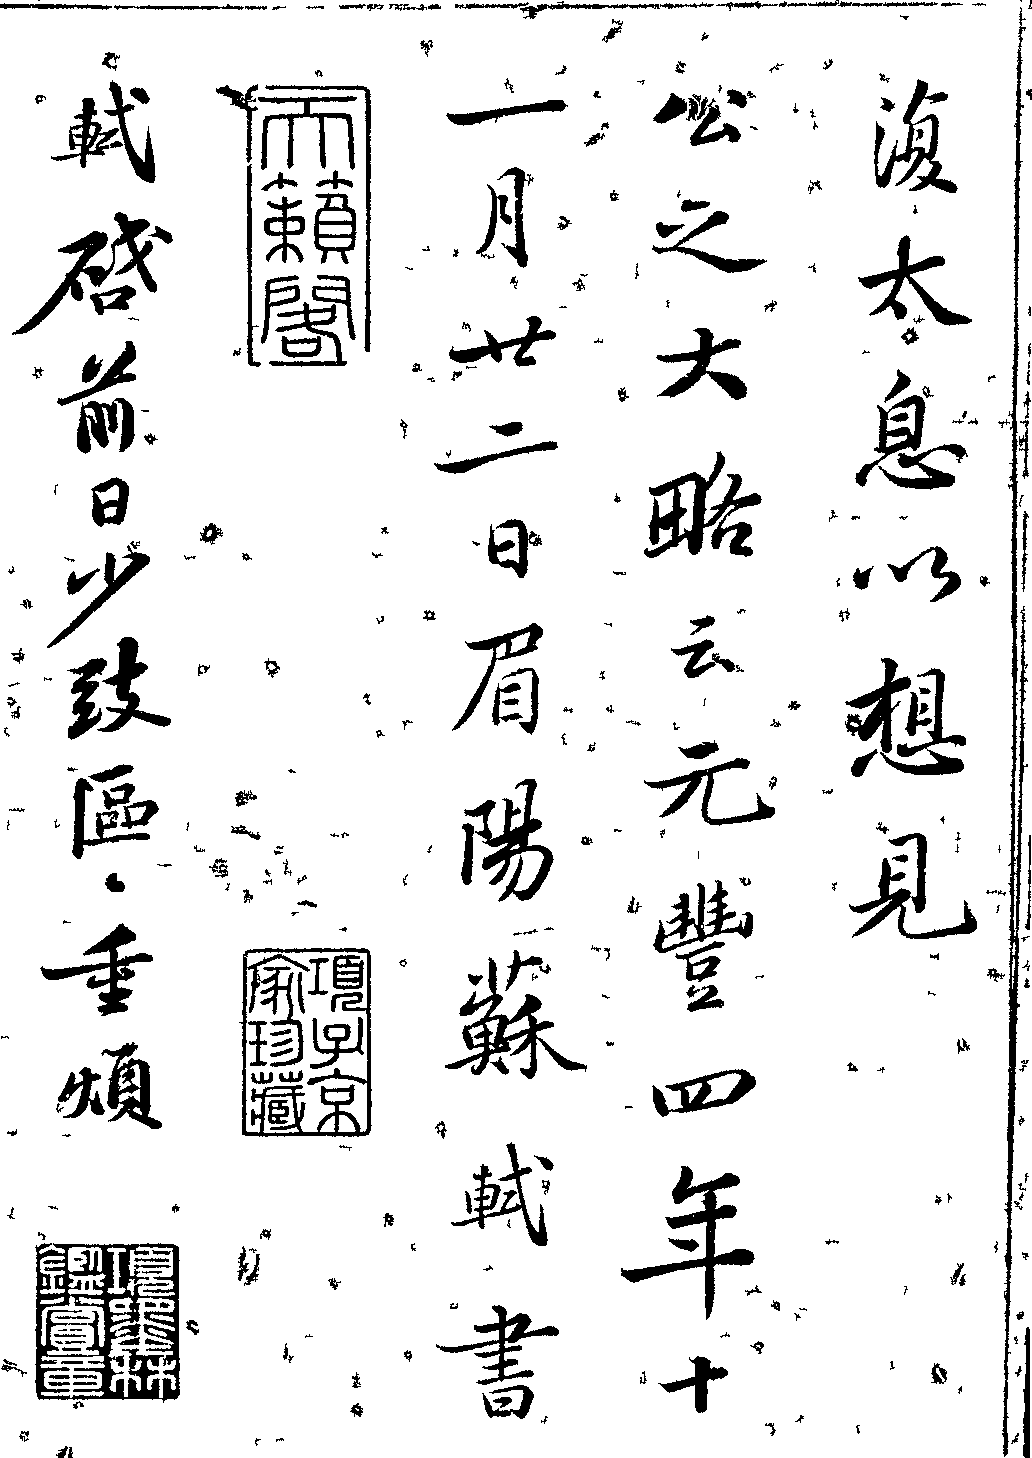 復太息以想見
公之大略云元豐四年十
一月廿二日眉陽蘇軾書
天籟閣
項子京
家珍藏
軾啓前日少致區〻重煩
項墨林
鑑賞章